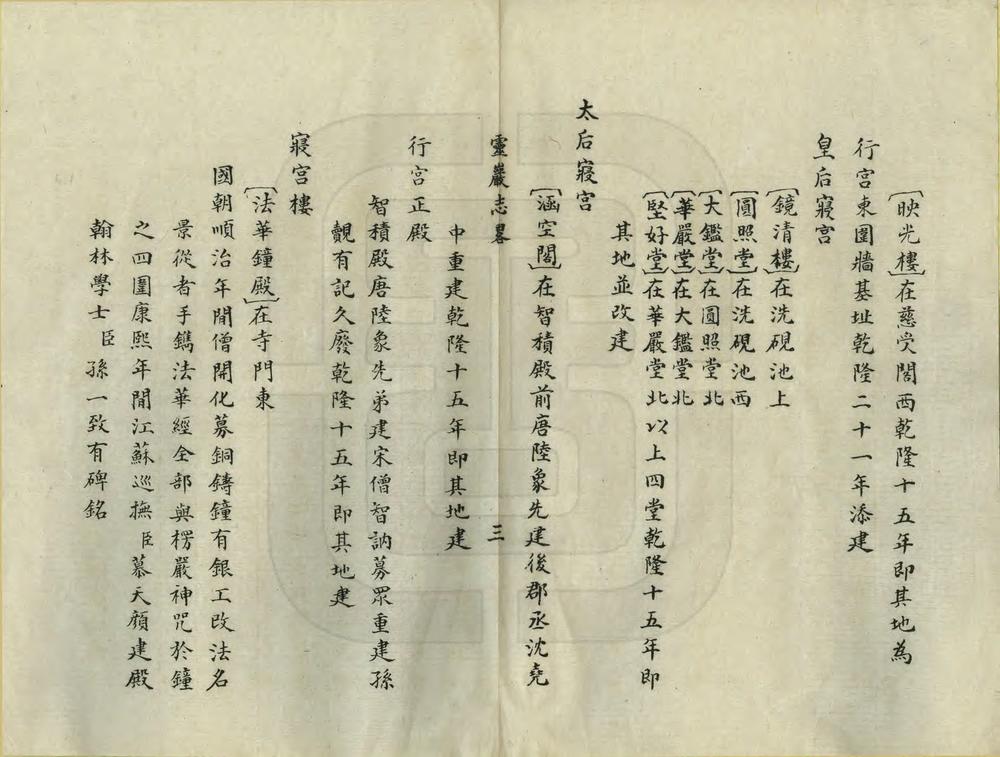 〔映光樓〕在慈受閣西乾隆十五年即其地為
行宮東圍牆基址乾隆二十一年添建
皇后寢宮
〔鏡清樓〕在洗硯池上
〔圓照堂〕在洗硯池西
〔大鑑堂〕在圓照堂北
〔華嚴堂〕在大鑑堂北
〔堅好堂〕在華嚴堂北以上四堂乾隆十五年即
其地並改建
太后寢宮
〔涵空閣〕在智積殿前唐陸象先建後郡丞沈堯
靈巖志畧 三
中重建乾隆十五年即其地建
行宮正殿
智積殿唐陸象先弟建宋僧智訥募眾重建孫
覿有記久廢乾隆十五年即其地建
寢宮樓
〔法華鐘殿〕在寺門東
國朝順治年間僧開化募銅鑄鐘有銀工改法名
景從者手鐫法華經全部與楞嚴神咒於鐘
之四圍康熙年間江蘇巡撫臣慕天顏建殿
翰林學士臣孫一致有碑銘